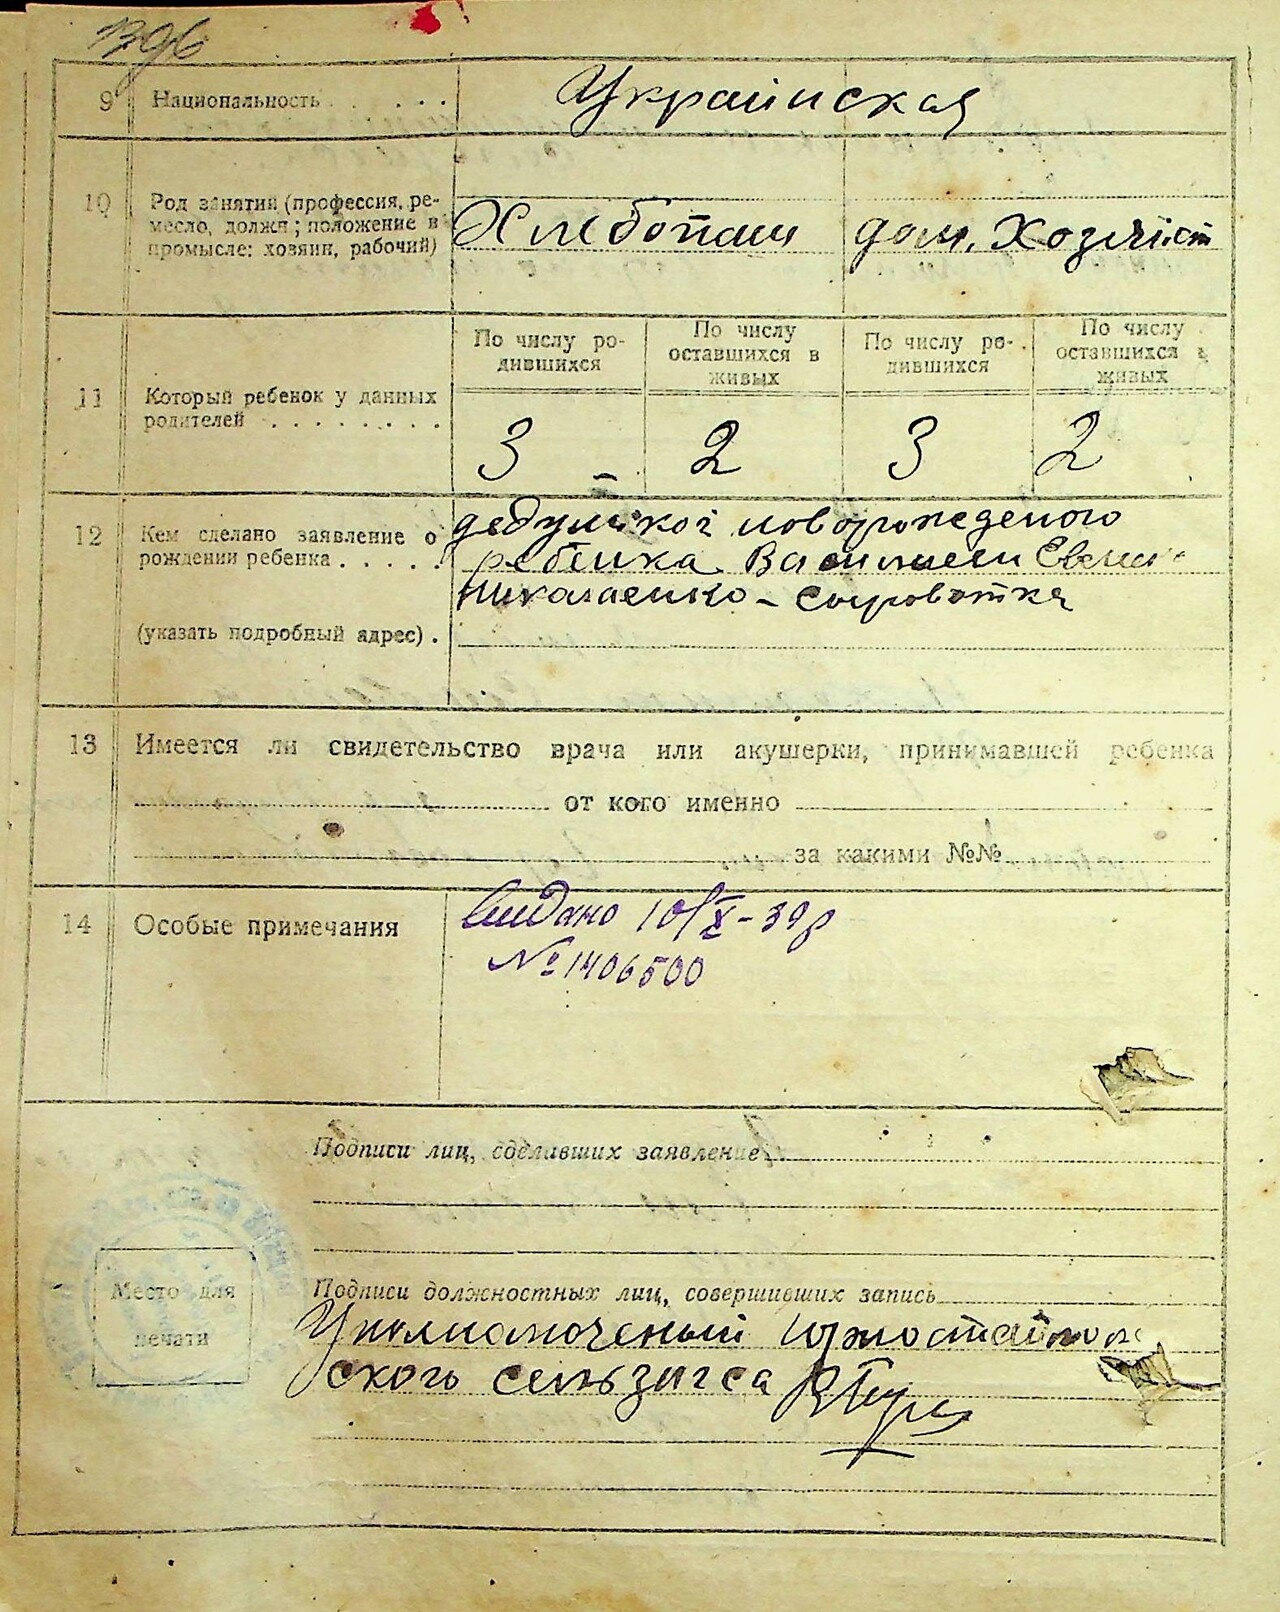 1396
9 Национальность . . . . . Украинская
10 Род занятий (профессия, ре-
месло, должн; положение в
промысле: хозяин, рабочий)
Хлебопаш дом. хозяйст
11 Который ребенок у данных
родителей . . . . . . . .
По числу ро-
дившихся
По числу
оставшихся в
живых
По числу ро-
дившихся
По числу
оставшихся в
живых
3 – 2 3 2
12 Кем сделано заявление о
рождении ребенка . . . . .
(указать подробный адрес) .
дедушкой новорожденого
ребенка Василием
Николаенко – Сыроватка
13 Имеется ли свидетельство врача или акушерки, принимавшей ребенка
от кого именно
за какими №№
14 Особые примечания
Видано 10/X-39р
№ 1406500
Подписи лиц, сделавших заявление
Место для
печати
Подписи должностных лиц, совершивших запись
Уполномоченый
ского